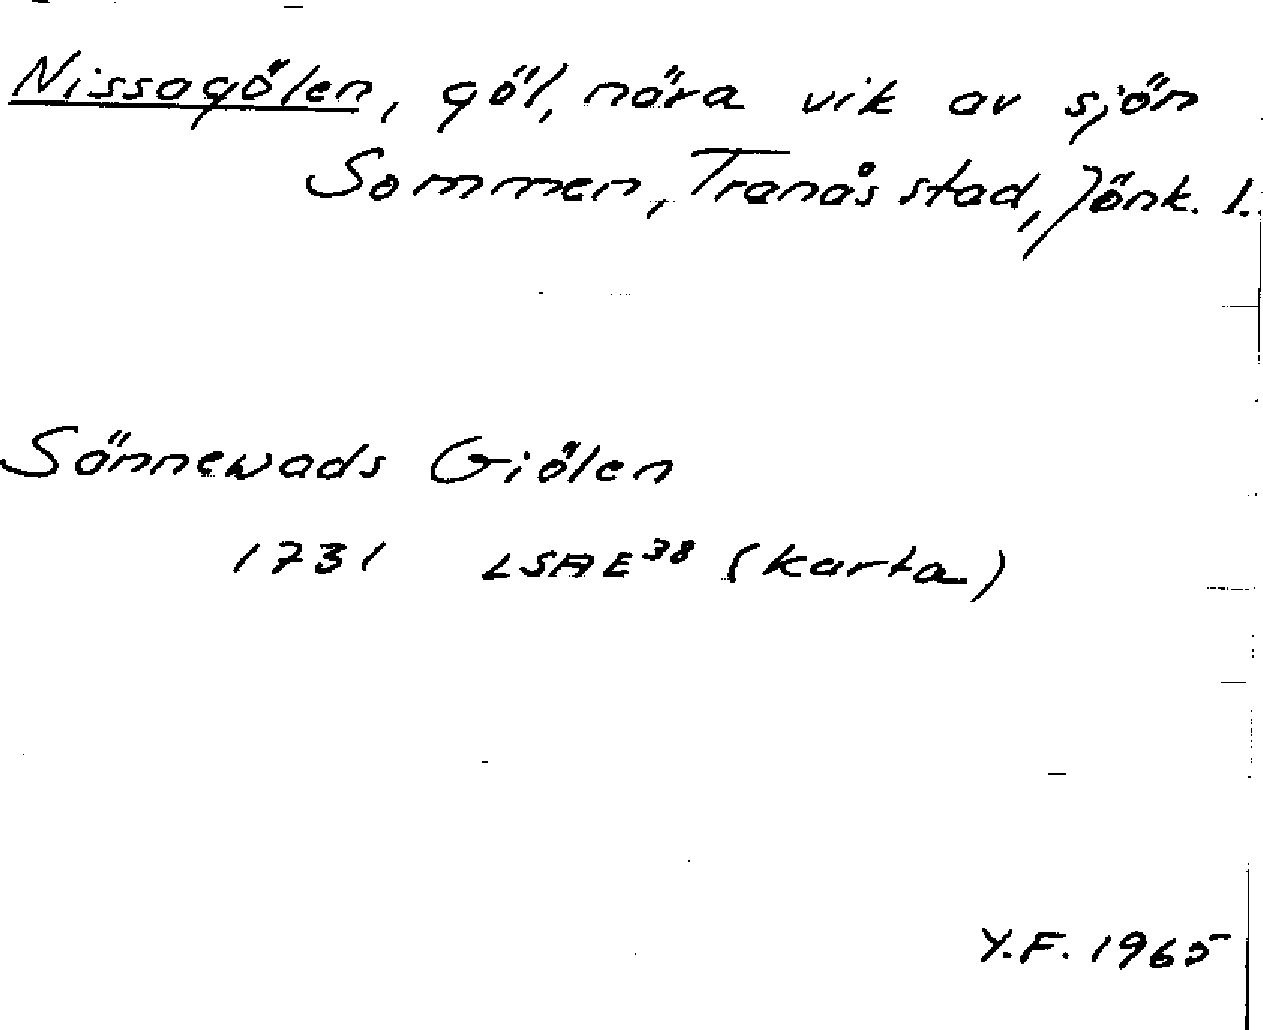 Nissagölen, göl, nära vik av sjön
Sommen, Tranås stad, Jönk. l.
Sönnewads Giölen
1731 LSA E³⁸ (karta)
Y.F. 1965